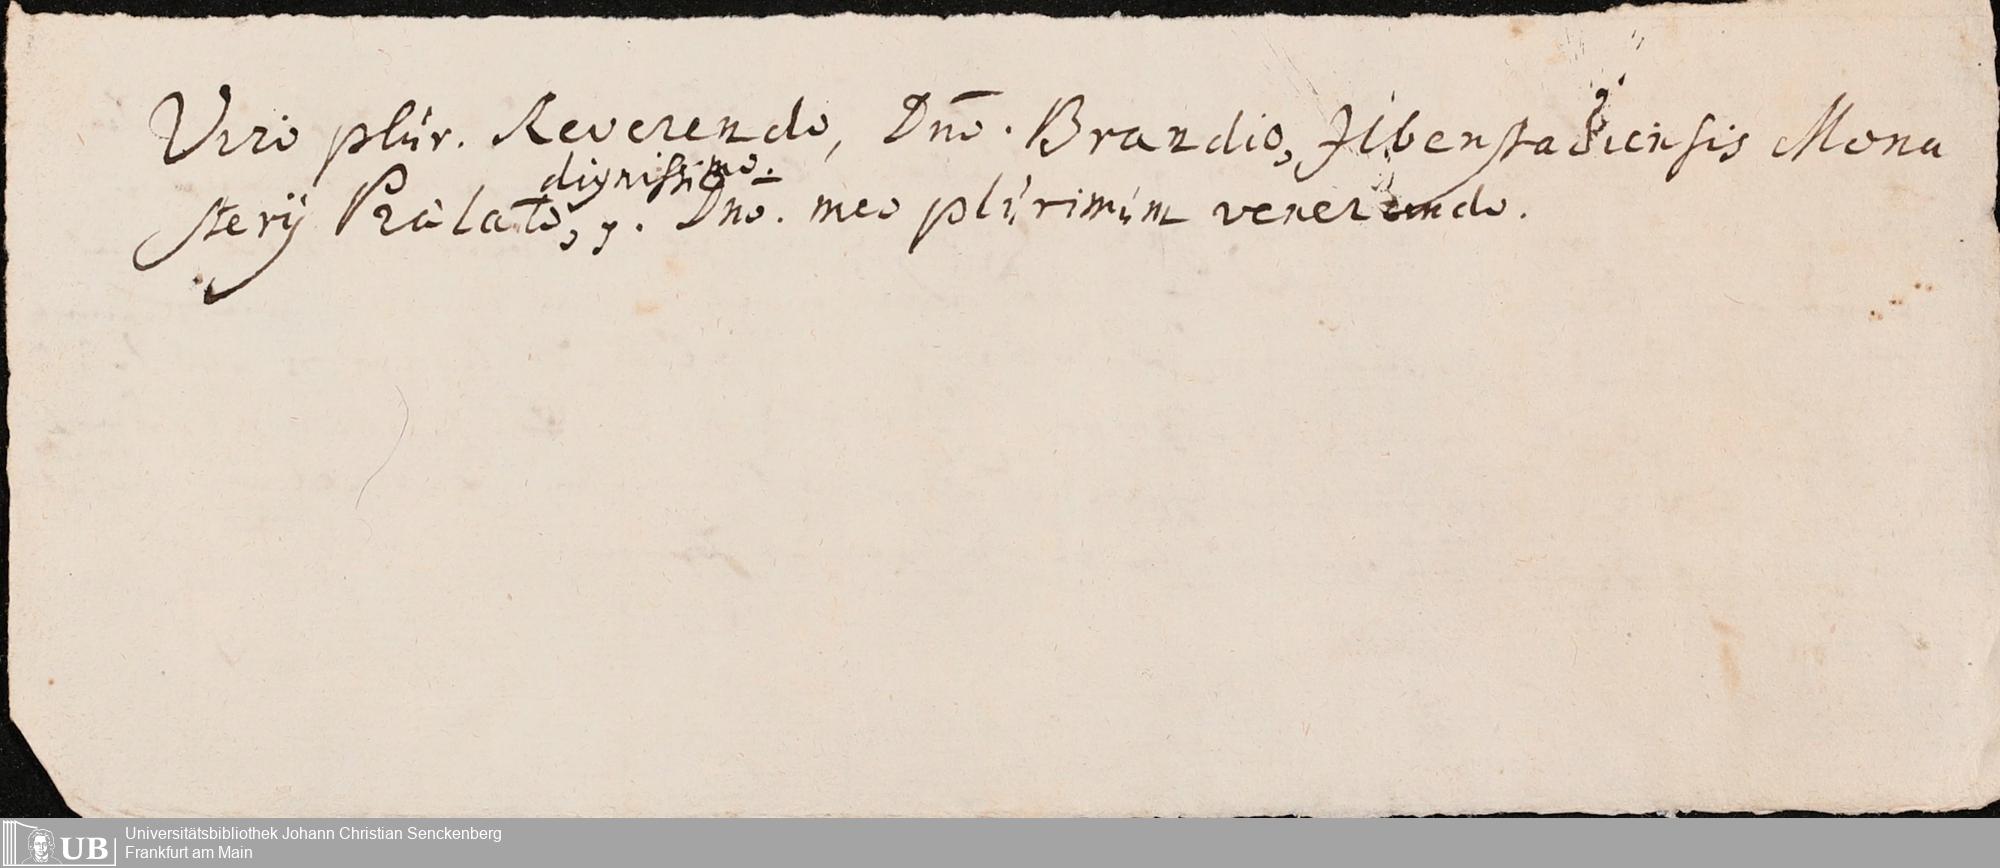 Viro plúr. Reverendo, Dn̄o. Brandio, Ilbenstadiensis Mona
dignissimo.
sterÿ Prälato, Dn̄o. meo plúrimúm venerando.
Universitätsbibliothek Johann Christian Senckenberg
UB Frankfurt am Main